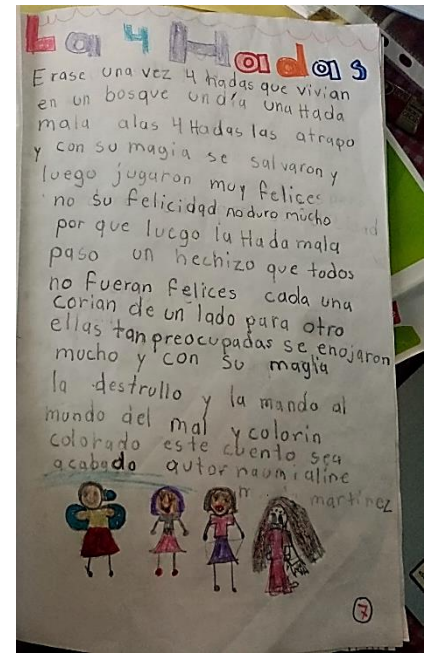 La 4 Hadas
Erase una vez 4 hadas que vivian
en un bosque un día una Hada
mala alas 4 Hadas las atrapo
y con su magia se salvaron y
luego jugaron muy felices
no su felicidad no duro mucho
por que luego la Hada mala
paso un hechizo que todos
no fueran felices cada una
corian de un lado para otro
ellas tan preocupadas se enojaron
mucho y con su maglia
la destrullo y la mando al
mundo del mal y colorin
colorado este cuento sea
acabado autor naumi aline
martinez
7